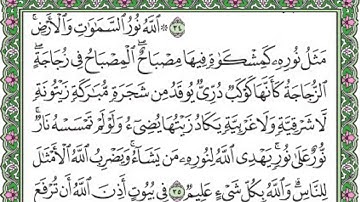 ٣٤ ۞ ٱللَّهُ نُورُ ٱلسَّمَٰوَٰتِ وَٱلْأَرْضِۚ
مَثَلُ نُورِهِۦ كَمِشْكَوٰةٍ فِيهَا مِصْبَاحٌۖ ٱلْمِصْبَاحُ فِى زُجَاجَةٍۖ
ٱلزُّجَاجَةُ كَأَنَّهَا كَوْكَبٌ دُرِّىٌّ يُوقَدُ مِن شَجَرَةٍ مُّبَٰرَكَةٍ زَيْتُونَةٍ
لَّا شَرْقِيَّةٍ وَلَا غَرْبِيَّةٍ يَكَادُ زَيْتُهَا يُضِىٓءُ وَلَوْ لَمْ تَمْسَسْهُ نَارٌۚ
نُّورٌ عَلَىٰ نُورٍۗ يَهْدِى ٱللَّهُ لِنُورِهِۦ مَن يَشَآءُۚ وَيَضْرِبُ ٱللَّهُ ٱلْأَمْثَٰلَ
لِلنَّاسِۗ وَٱللَّهُ بِكُلِّ شَىْءٍ عَلِيمٌ ٣٥ فِى بُيُوتٍ أَذِنَ ٱللَّهُ أَن تُرْفَعَ